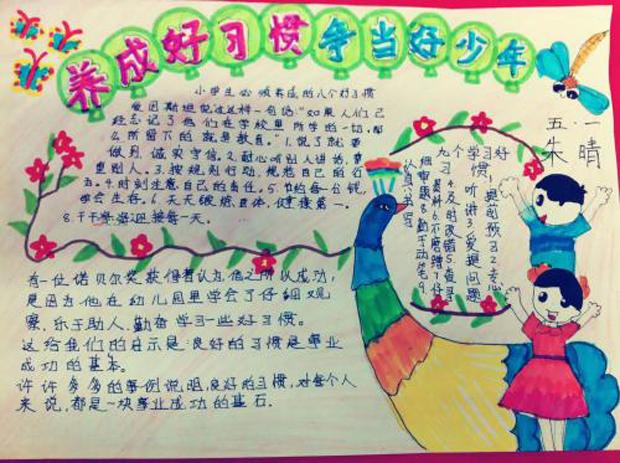 养成好习惯争当好少年
小学生必须养成的八个好习惯
爱因斯坦说过这样一句话:“如果人们已
经忘记了他们在学校里所学的一切,那
么所留下的就是教育。”1.说了就要
做到诚实守信。2.耐心听别人讲话,尊
重别人。3.按规则行动,规范自己的行
为。4.时刻注意自己的责任。5.节约每一分钱,
学会生存。6.天天锻炼身体,健康第一。
8.干干净净迎接每一天。
五·一
朱晴
九个学习好
习惯:1.提前预习2.专心
听讲3.爱提问题
4.及时改错5.查
资料6.不磨蹭7.仔
细审题8.勤于动笔9.
认真书写
有一位诺贝尔奖获得者认为他之所以成功,
是因为他在幼儿园里学会了仔细观
察,乐于助人,勤奋学习一些好习惯。
这给我们的启示是:良好的习惯是事业
成功的基本。
许许多多的事例说明,良好的习惯,对每个人
来说,都是一块事业成功的基石。